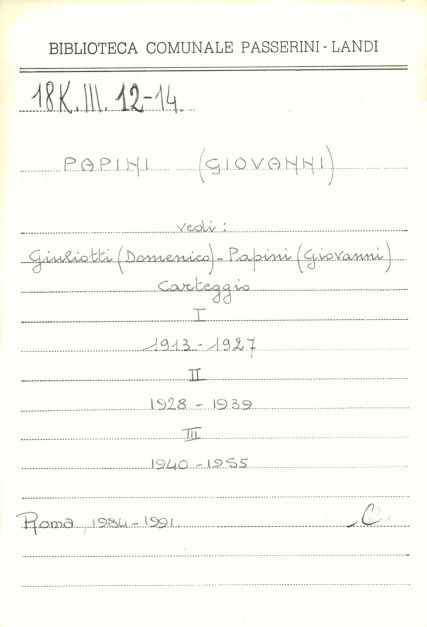 BIBLIOTECA COMUNALE PASSERINI - LANDI
18K.III. 12-14.
PAPINI (GIOVANNI)
vedi:
Giuliotti (Domenico) - Papini (Giovanni)
Carteggio
I
1913 - 1927
II
1928 - 1939
III
1940 - 1955
Roma, 1984 - 1991
C